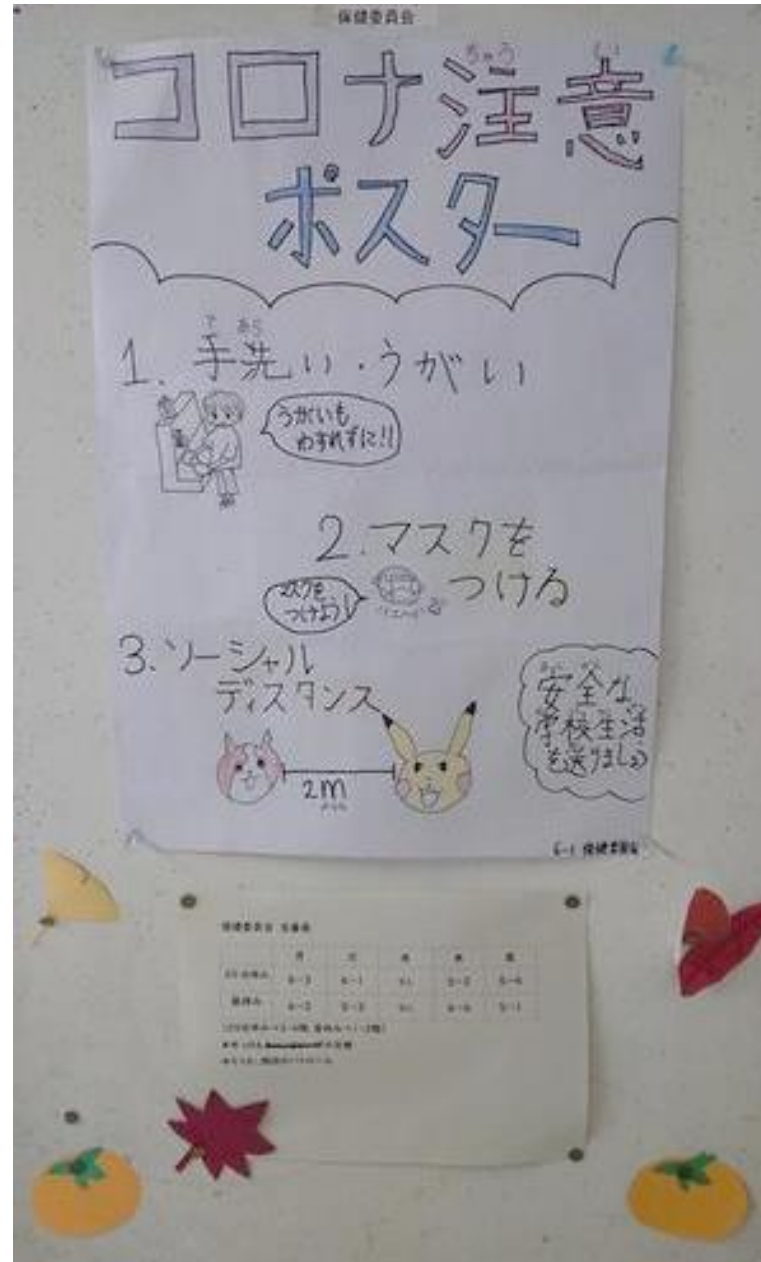 保健委員会
コロナ注意
ちゅう い
ポスター
1. 手洗い・うがい
て あら
うがいも
わすれずに!!
2.マスクを
つける
マスクを
つけよう!
3.ソーシャル
ディスタンス
2m
安全な
学校生活
を送りましょう
6-1 保健委員会
保健委員会 当番表
月 火 水 木 金
6-3 6-1 5-2
昼休み 6-2 5-3 5-1